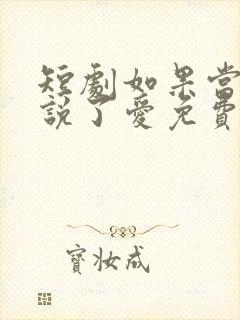 短劇如果當
說了愛免費
寶妝成